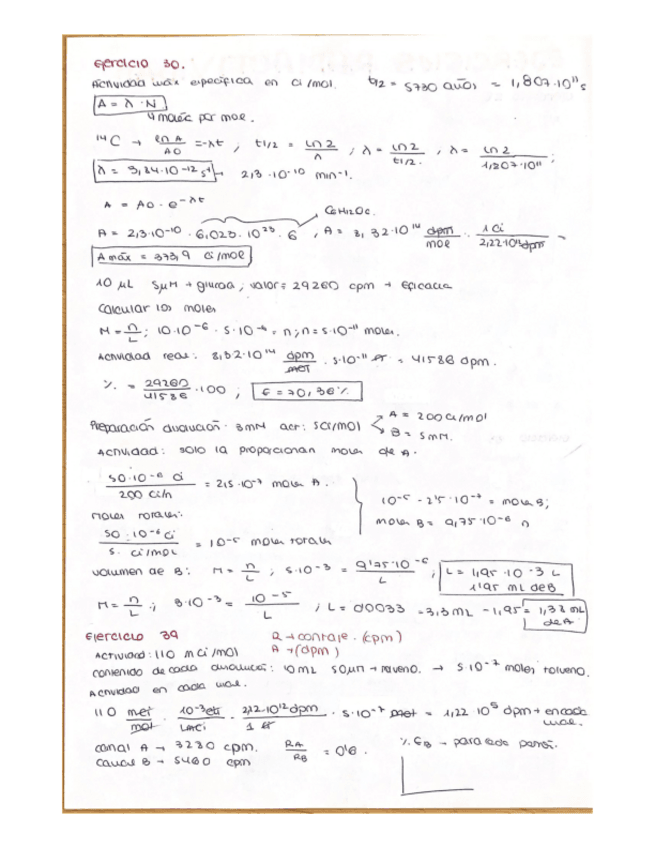 Ejercicio 30.
Actividad máx específica en Ci/mol. t1/2 = 5730 años = 1,807·10¹¹ s
A = λ · N
↳ moléc por mol.
¹⁴C → ln A / A0 = -λt ; t1/2 = ln 2 / λ ; λ = ln 2 / t1/2 , λ = ln 2 / 1,807·10¹¹ ;
λ = 3,84·10⁻¹² s⁻¹ → 2,3·10⁻¹⁰ min⁻¹.
A = A0 · e^-λt
C6H12O6.
A = 2,3·10⁻¹⁰ · 6,023·10²³ · 6 , A = 8,32·10¹⁴ dpm/mol · 1 Ci / 2,22·10¹² dpm =
A máx = 373,9 Ci/mol
10 µL 5µM → glucosa ; valor = 29260 cpm → eficacia
Calcular los moles
M = n/L ; 10·10⁻⁶ · 5·10⁻⁶ = n ; n = 5·10⁻¹¹ moles.
Actividad real: 8,32·10¹⁴ dpm/mol · 5·10⁻¹¹ = 41586 dpm.
% = 29260/41586 · 100 ; E = 70,36%
Preparación disolución: 3mM act: 5Ci/mol A = 200 Ci/mol
B = 5mM.
Actividad: solo la proporcionan moles de A.
50·10⁻⁶ Ci / 200 Ci/n = 2,5·10⁻⁷ moles A.
10⁻⁵ - 2,5·10⁻⁷ = moles B;
moles totales: moles B = 9,75·10⁻⁶ n
50·10⁻⁶ Ci / 5 Ci/mol = 10⁻⁵ moles totales
Volumen de B: M = n/L ; 5·10⁻³ = 9,75·10⁻⁶ / L ; L = 1,95·10⁻³ L
1,95 mL de B
M = n/L ; 3·10⁻³ = 10⁻⁵ / L ; L = 0'0033 = 3,3 mL - 1,95 = 1,38 mL
de A
Ejercicio 39 R → contaje (cpm)
A → (dpm)
Actividad: 110 mCi/mol
contenido de cada disolución: 10 mL 50µM → tolueno. → 5·10⁻⁷ moles tolueno.
Actividad en cada vial.
110 mCi/mol · 10⁻³ Ci / 1mCi · 2,22·10¹² dpm / 1 Ci · 5·10⁻⁷ mol = 1,22 10⁵ dpm → en cada
vial.
canal A → 3280 cpm. RA/RB = 0'6. % EB → para cada
canal B → 5460 cpm